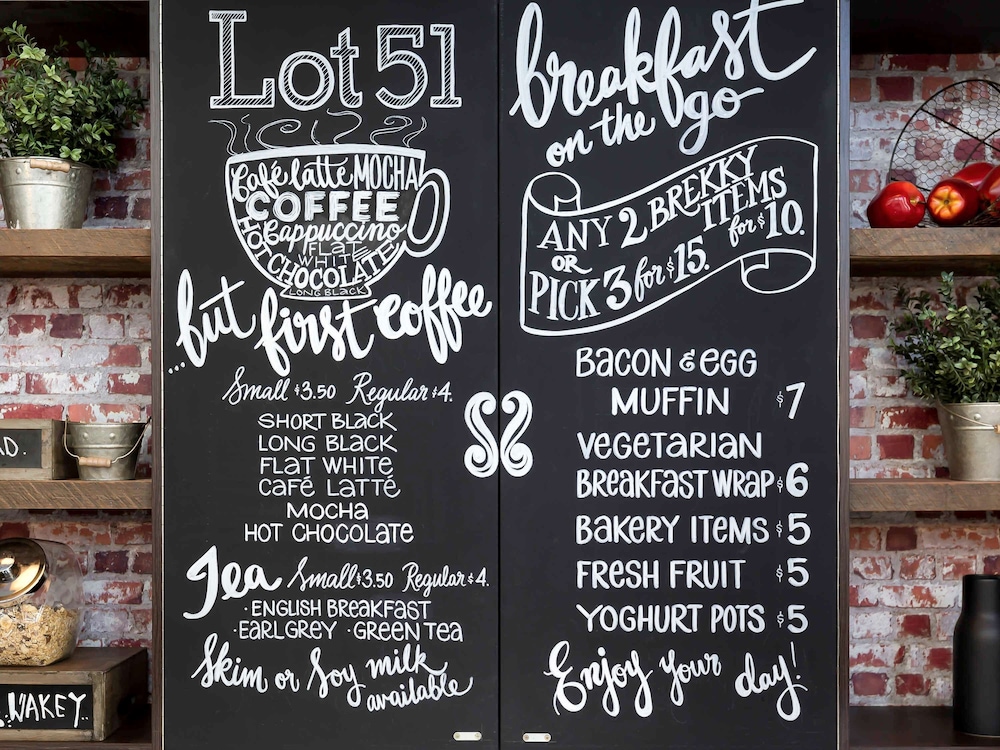 Lot 51
Café latte MOCHA
COFFEE
Cappuccino
FLAT
WHITE
HOT CHOCOLATE
LONG BLACK
...but first coffee
Small $3.50 Regular $4.
SHORT BLACK
LONG BLACK
FLAT WHITE
CAFÉ LATTÉ
MOCHA
HOT CHOCOLATE
Tea Small $3.50 Regular $4.
·ENGLISH BREAKFAST
·EARL GREY ·GREEN TEA
Skim or Soy milk
available
breakfast
on the go
ANY 2 BREKKY
ITEMS
for $10.
OR
PICK 3 for $15.
BACON & EGG
MUFFIN $7
VEGETARIAN
BREAKFAST WRAP $6
BAKERY ITEMS $5
FRESH FRUIT $5
YOGHURT POTS $5
Enjoy your day!
D.
WAKEY..